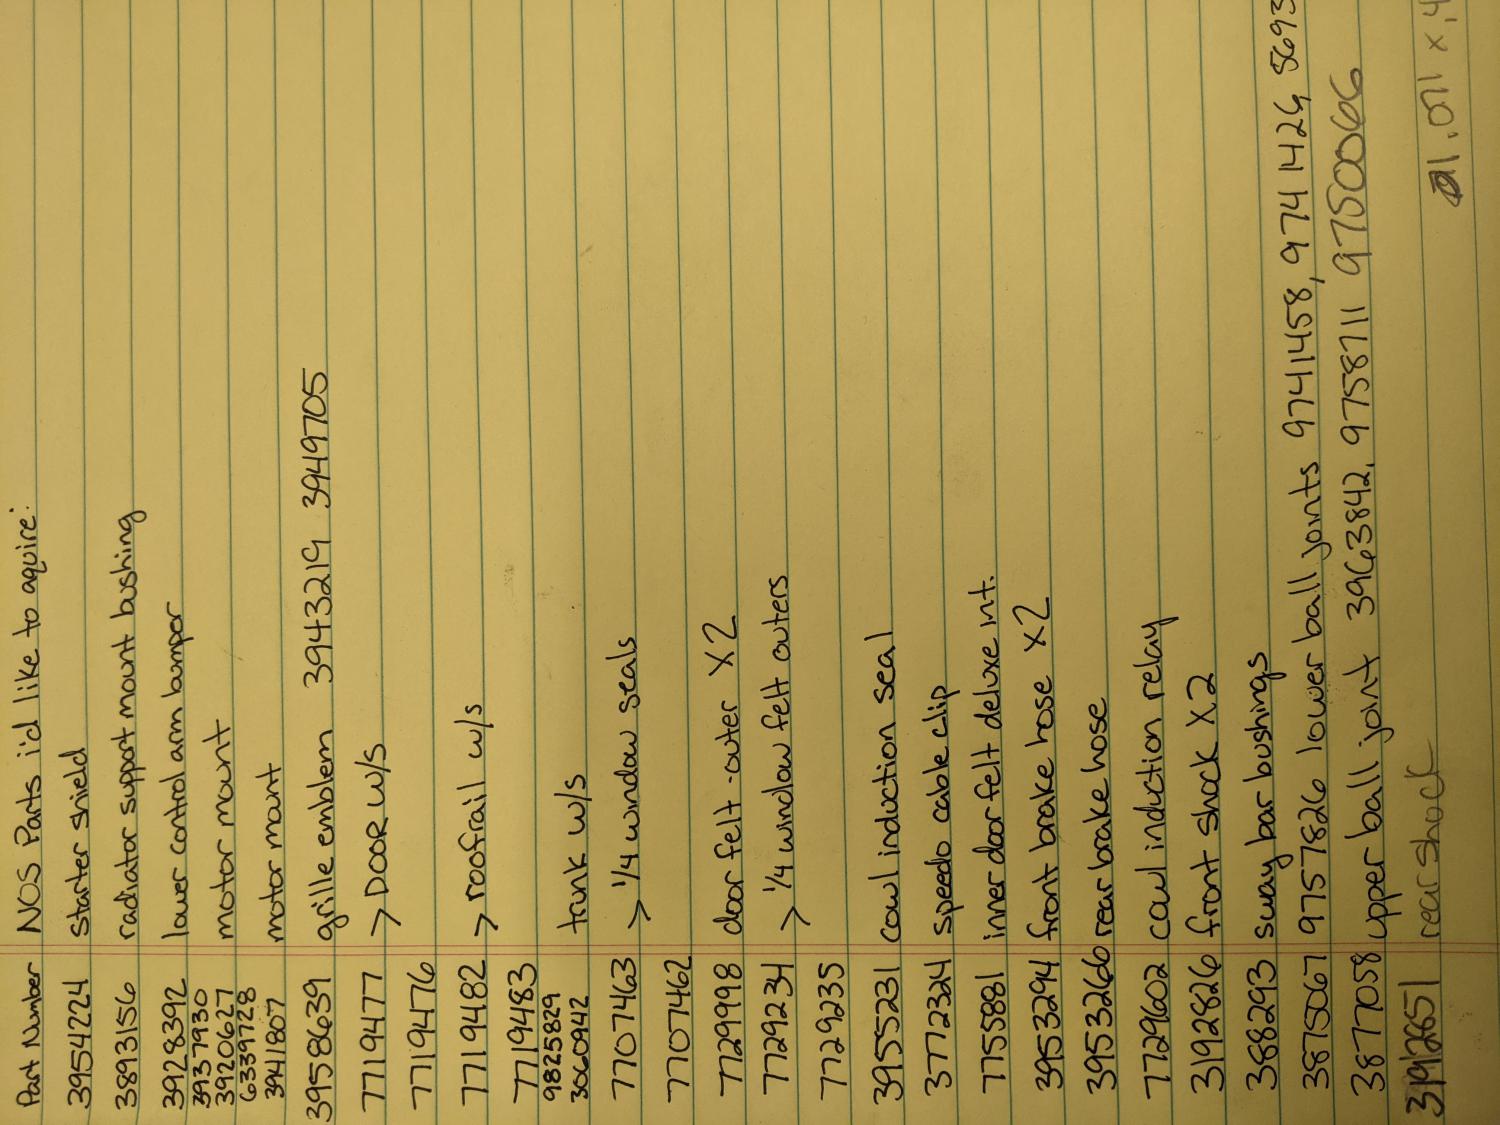 Part Number NOS Parts i'd like to aquire:
3954224 starter shield
3893156 radiator support mount bushing
3928392 lower control arm bumper
3937930
3920627 motor mount
6339728
3941807 motor mount
3958639 grille emblem 3943219 3949705
7719477 > DOOR w/s
7719476
7719482 > roofrail w/s
7719483
9825829
3060942 trunk w/s
7707463 > 1/4 window seals
7707462
7729998 door felt-outer X2
7729234 > 1/4 window felt outers
7729235
3955231 cowl induction seal
3772324 speedo cable clip
7755881 inner door felt deluxe int.
3953294 front brake hose X2
3953266 rear brake hose
7729602 cowl induction relay
3192826 front shock X2
3888293 sway bar bushings
3875067 9757826 lower ball joints 9741458, 9741426, 5693
3877058 upper ball joint 3963842, 9758711 9750066
3192851 rear shock